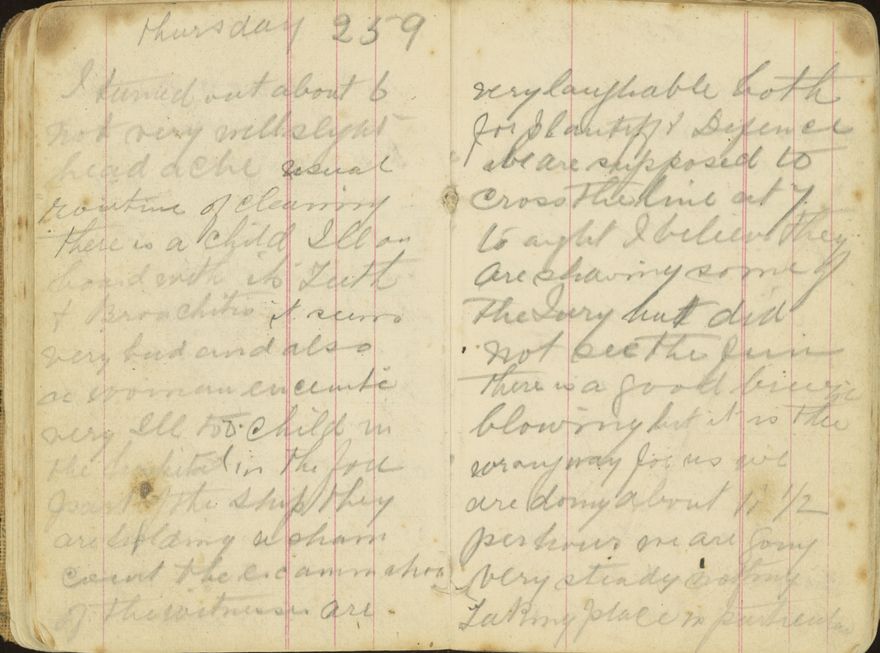 Thursday 259
I turned out about 6
not very well slight
head ache usual
routine of cleaning
there is a child Ill on
board with its Teeth
& Bronchitis it seems
very bad and also
a woman enceinte
very Ill child in
the hospital in the fore
part of the ship they
are holding a sham
court the examination
of the witnesses are
very laughable both
for Plantiff & Defence
we are supposed to
cross the line at 7
to night I believe they
are shaving some of
the Jury but did
not see the fun
there is a good breeze
blowing but it is the
wrong way for us we
are doing about 11 1/2
per hour we are going
very steady nothing
Taking place in particular